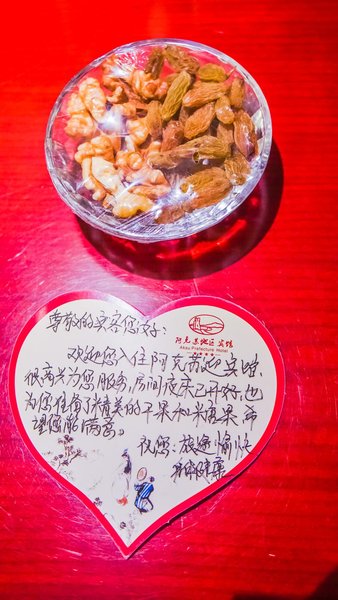 阿克苏地区宾馆
Aksu Prefecture Hotel
尊敬的宾客您好：
欢迎您入住阿克苏迎宾馆，
很高兴为您服务，房间夜床已开好，也
为您准备了精美的干果和水果，希
望您能满意。
祝您：旅途愉快
身体健康